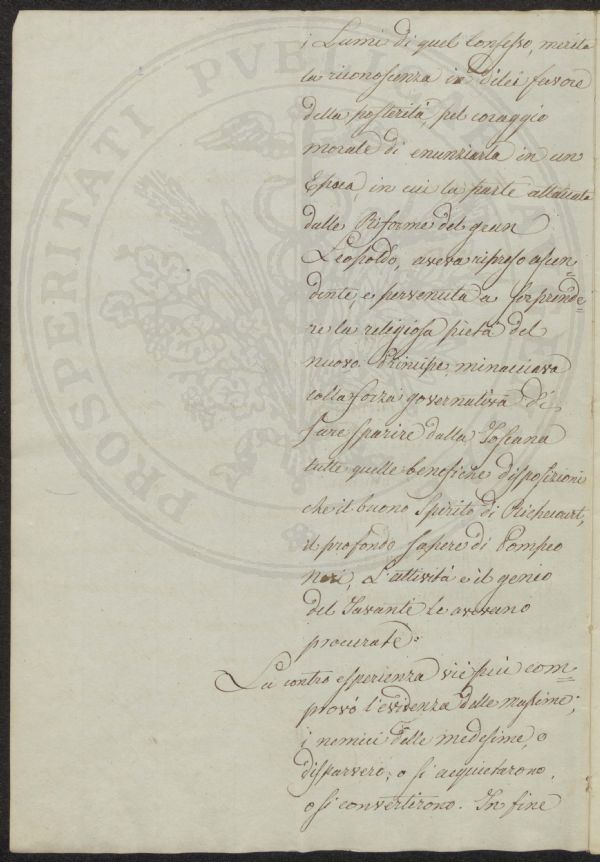 i Lumi di quel Consesso, merita
la riconoscenza in di lei favore
della posterità, pel coraggio
morale di enunziarla in un
Epoca, in cui la parte allattata
dalle Riforme del gran
Leopoldo, aveva ripreso ascen=
dente, e pervenuta a sorprende=
re la religiosa pietà del
nuovo Principe, minacciava
colla forza governativa di
fare sparire dalla Toscana
tutte quelle benefiche disposizioni
che il buono Spirito di Richecourt,
il profondo sapere di Pompeo
Neri, L'attività e il genio
del Tavanti le avevano
procurate.
La contro esperienza vie più com=
provò l'evidenza delle massime;
i nemici delle medesime, o
disparvero, o si acquietarono,
o si convertirono. In fine
PROSPERITATI PUBLICAE